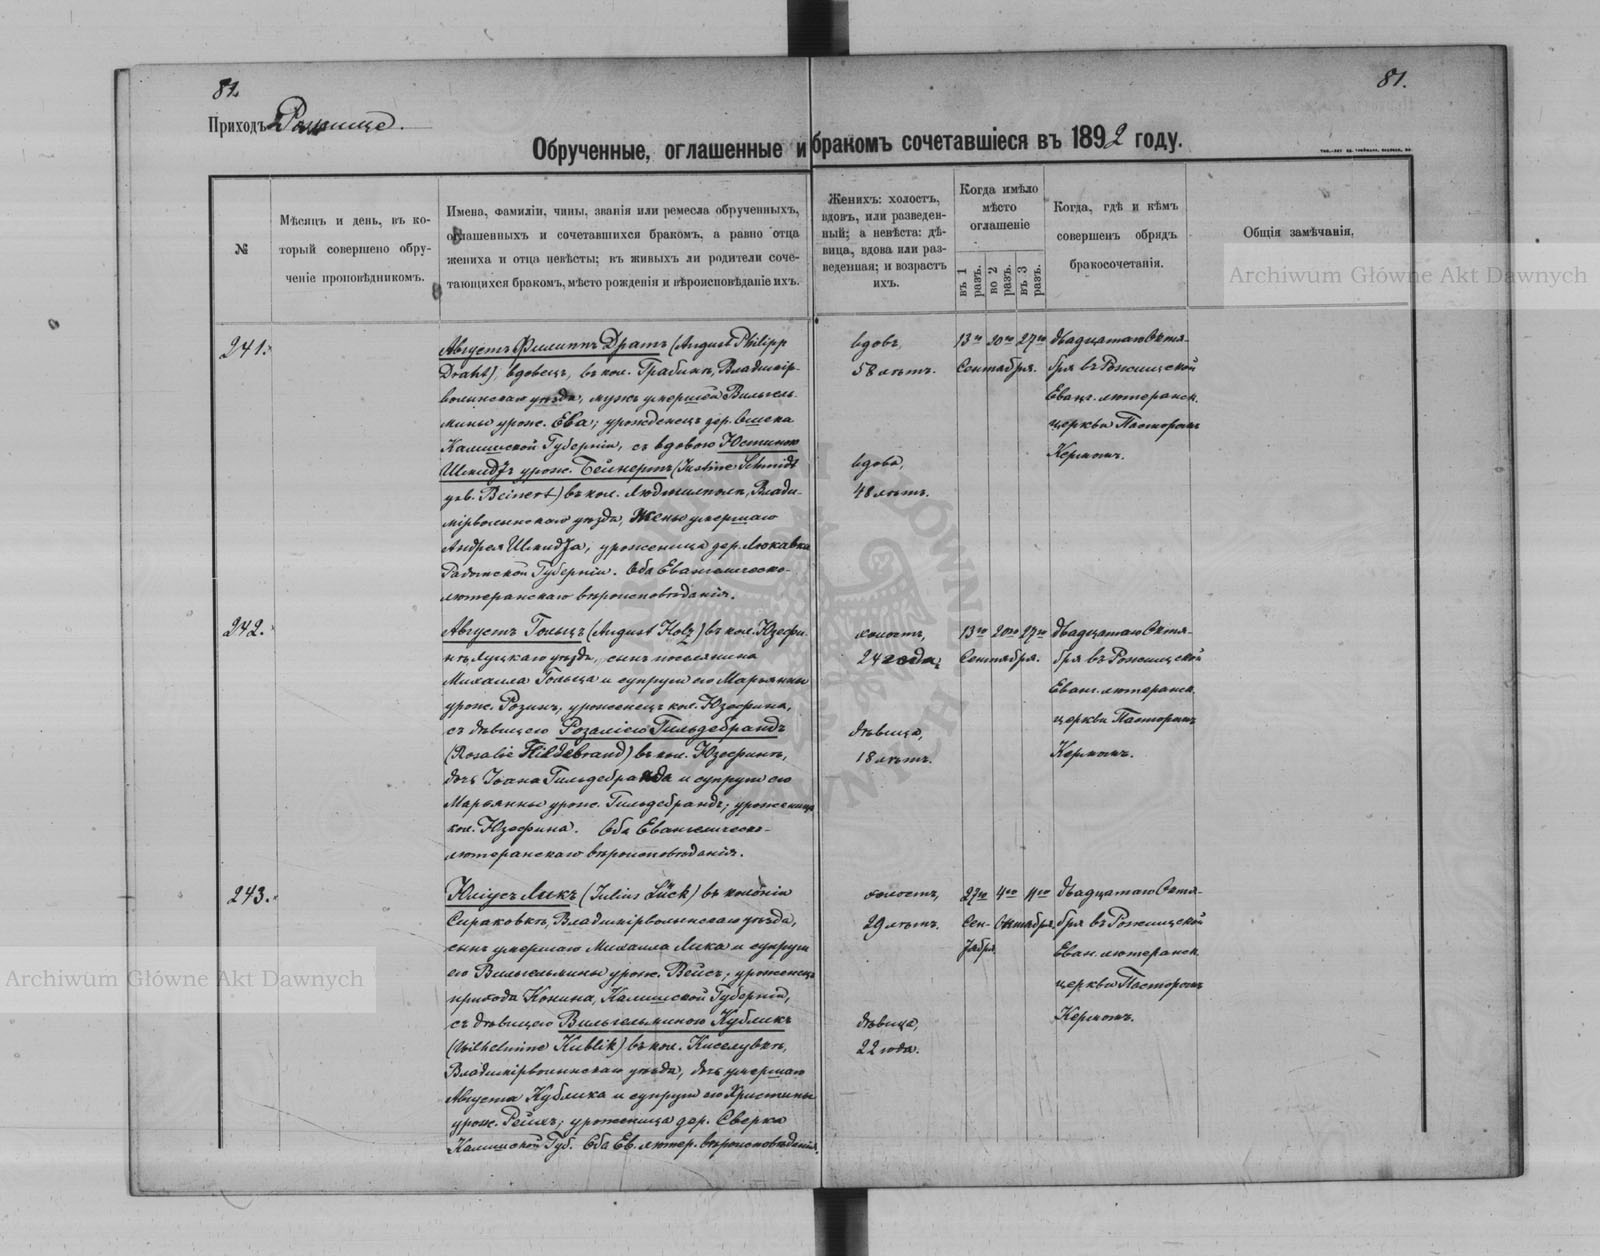 82
81.
Приходъ Рожище.
Обрученные, оглашенные и бракомъ сочетавшіеся въ 1892 году.
№
Мѣсяцъ и день, въ ко-
торый совершено обру-
ченіе проповѣдникомъ.
Имена, фамиліи, чины, званія или ремесла обрученныхъ,
оглашенныхъ и сочетавшихся бракомъ, а равно отца
жениха и отца невѣсты; въ живыхъ ли родители соче-
тающихся бракомъ, мѣсто рожденія и вѣроисповѣданіе ихъ.
Женихъ: холостъ,
вдовъ, или разведен-
ный; а невѣста: дѣ-
вица, вдова или раз-
веденная; и возрастъ
ихъ.
Когда имѣло
мѣсто
оглашеніе
въ 1 разъ.
во 2 разъ.
въ 3 разъ.
Когда, гдѣ и кѣмъ
совершенъ обрядъ
бракосочетанія.
Общія замѣчанія.
Archiwum Główne Akt Dawnych
241.
Августъ Филиппъ Дратъ (August Philipp
Draht), вдовецъ, въ кол. Грабина, Владимір-
волынскаго уѣзда, мужъ умершей Вильгель-
мины урож. Ева; урожденецъ дер.
Калишской Губерніи, съ вдовою Юстиною
Шмидтъ урож. Бейнертъ (Justine Schmidt
geb. Beinert) въ кол. Людмилполь, Влади-
мірволынскаго уѣзда, жены умершаго
Андрея Шмидта, уроженица дер. Люкавка
Радомской Губерніи. Оба Евангелическо-
лютеранскаго вѣроисповѣданія.
вдовъ,
58 лѣтъ.
вдова,
48 лѣтъ.
13го 20го 27го
Сентября.
двадцатаго Октя-
бря въ Рожищской
Еванг. лютеранск.
церкви Пасторомъ
Кермомъ.
242.
Августъ Гольцъ (August Holz) въ кол. Юзефи-
нѣ Луцкаго уѣзда, сынъ поселянина
Михаила Гольца и супруги его Марьянны
урож. Розинъ, уроженецъ кол. Юзефина,
съ дѣвицею Розаліею Гильдебрандъ
(Rosalie Hildebrand) въ кол. Юзефинѣ,
дочь Іоана Гильдебранда и супруги его
Марьянны урож. Гильдебрандъ; уроженица
кол. Юзефина. Оба Евангелическо-
лютеранскаго вѣроисповѣданія.
холостъ,
24 года;
дѣвица,
18 лѣтъ.
13го 20го 27го
Сентября.
двадцатаго Октя-
бря въ Рожищской
Еванг. лютеранск.
церкви Пасторомъ
Кермомъ.
243.
Юліусъ Ликъ (Julius Lück) въ колоніи
Сираковкѣ, Владимірволынскаго уѣзда,
сынъ умершаго Михаила Лика и супруги
его Вильгельмины урож. Вейсъ; уроженецъ
прихода Конина, Калишской Губерніи,
съ дѣвицею Вильгельминою Кубликъ
(Wilhelmine Kublik) въ кол. Киселувкѣ,
Владимірволынскаго уѣзда, дочь умершаго
Августа Кублика и супруги его Христины
урож. Рейхъ; уроженица дер. Сверка
Калишской Губ. Оба Ев. лютер. вѣроисповѣданія.
холостъ,
29 лѣтъ.
дѣвица,
22 года.
27го 4го 11го
Сен- Октября.
тября
двадцатаго Октя-
бря въ Рожищской
Еванг. лютеранск.
церкви Пасторомъ
Кермомъ.
Archiwum Główne Akt Dawnych